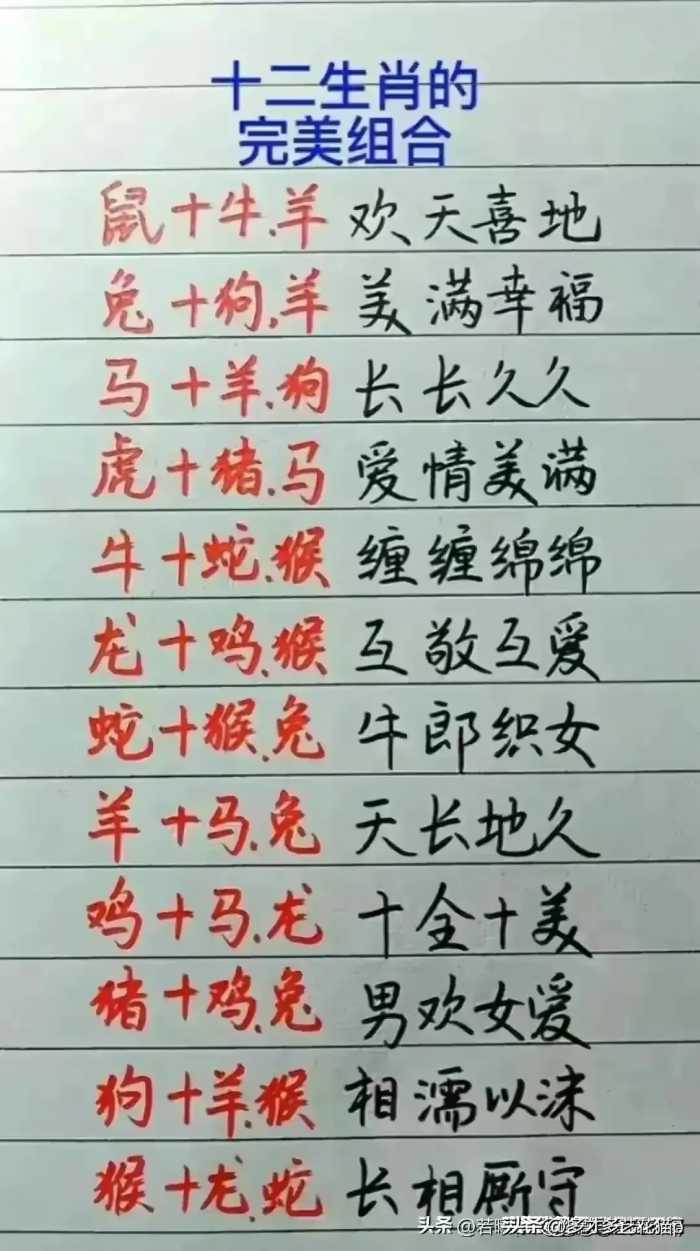 十二生肖的
完美组合
鼠+牛.羊 欢天喜地
兔+狗.羊 美满幸福
马+羊.狗 长长久久
虎+猪.马 爱情美满
牛+蛇.猴 缠缠绵绵
龙+鸡.猴 互敬互爱
蛇+猴.兔 牛郎织女
羊+马.兔 天长地久
鸡+马.龙 十全十美
猪+鸡.兔 男欢女爱
狗+羊.猴 相濡以沫
猴+龙.蛇 长相厮守
头条 @若
头条 @多才多艺花猫p